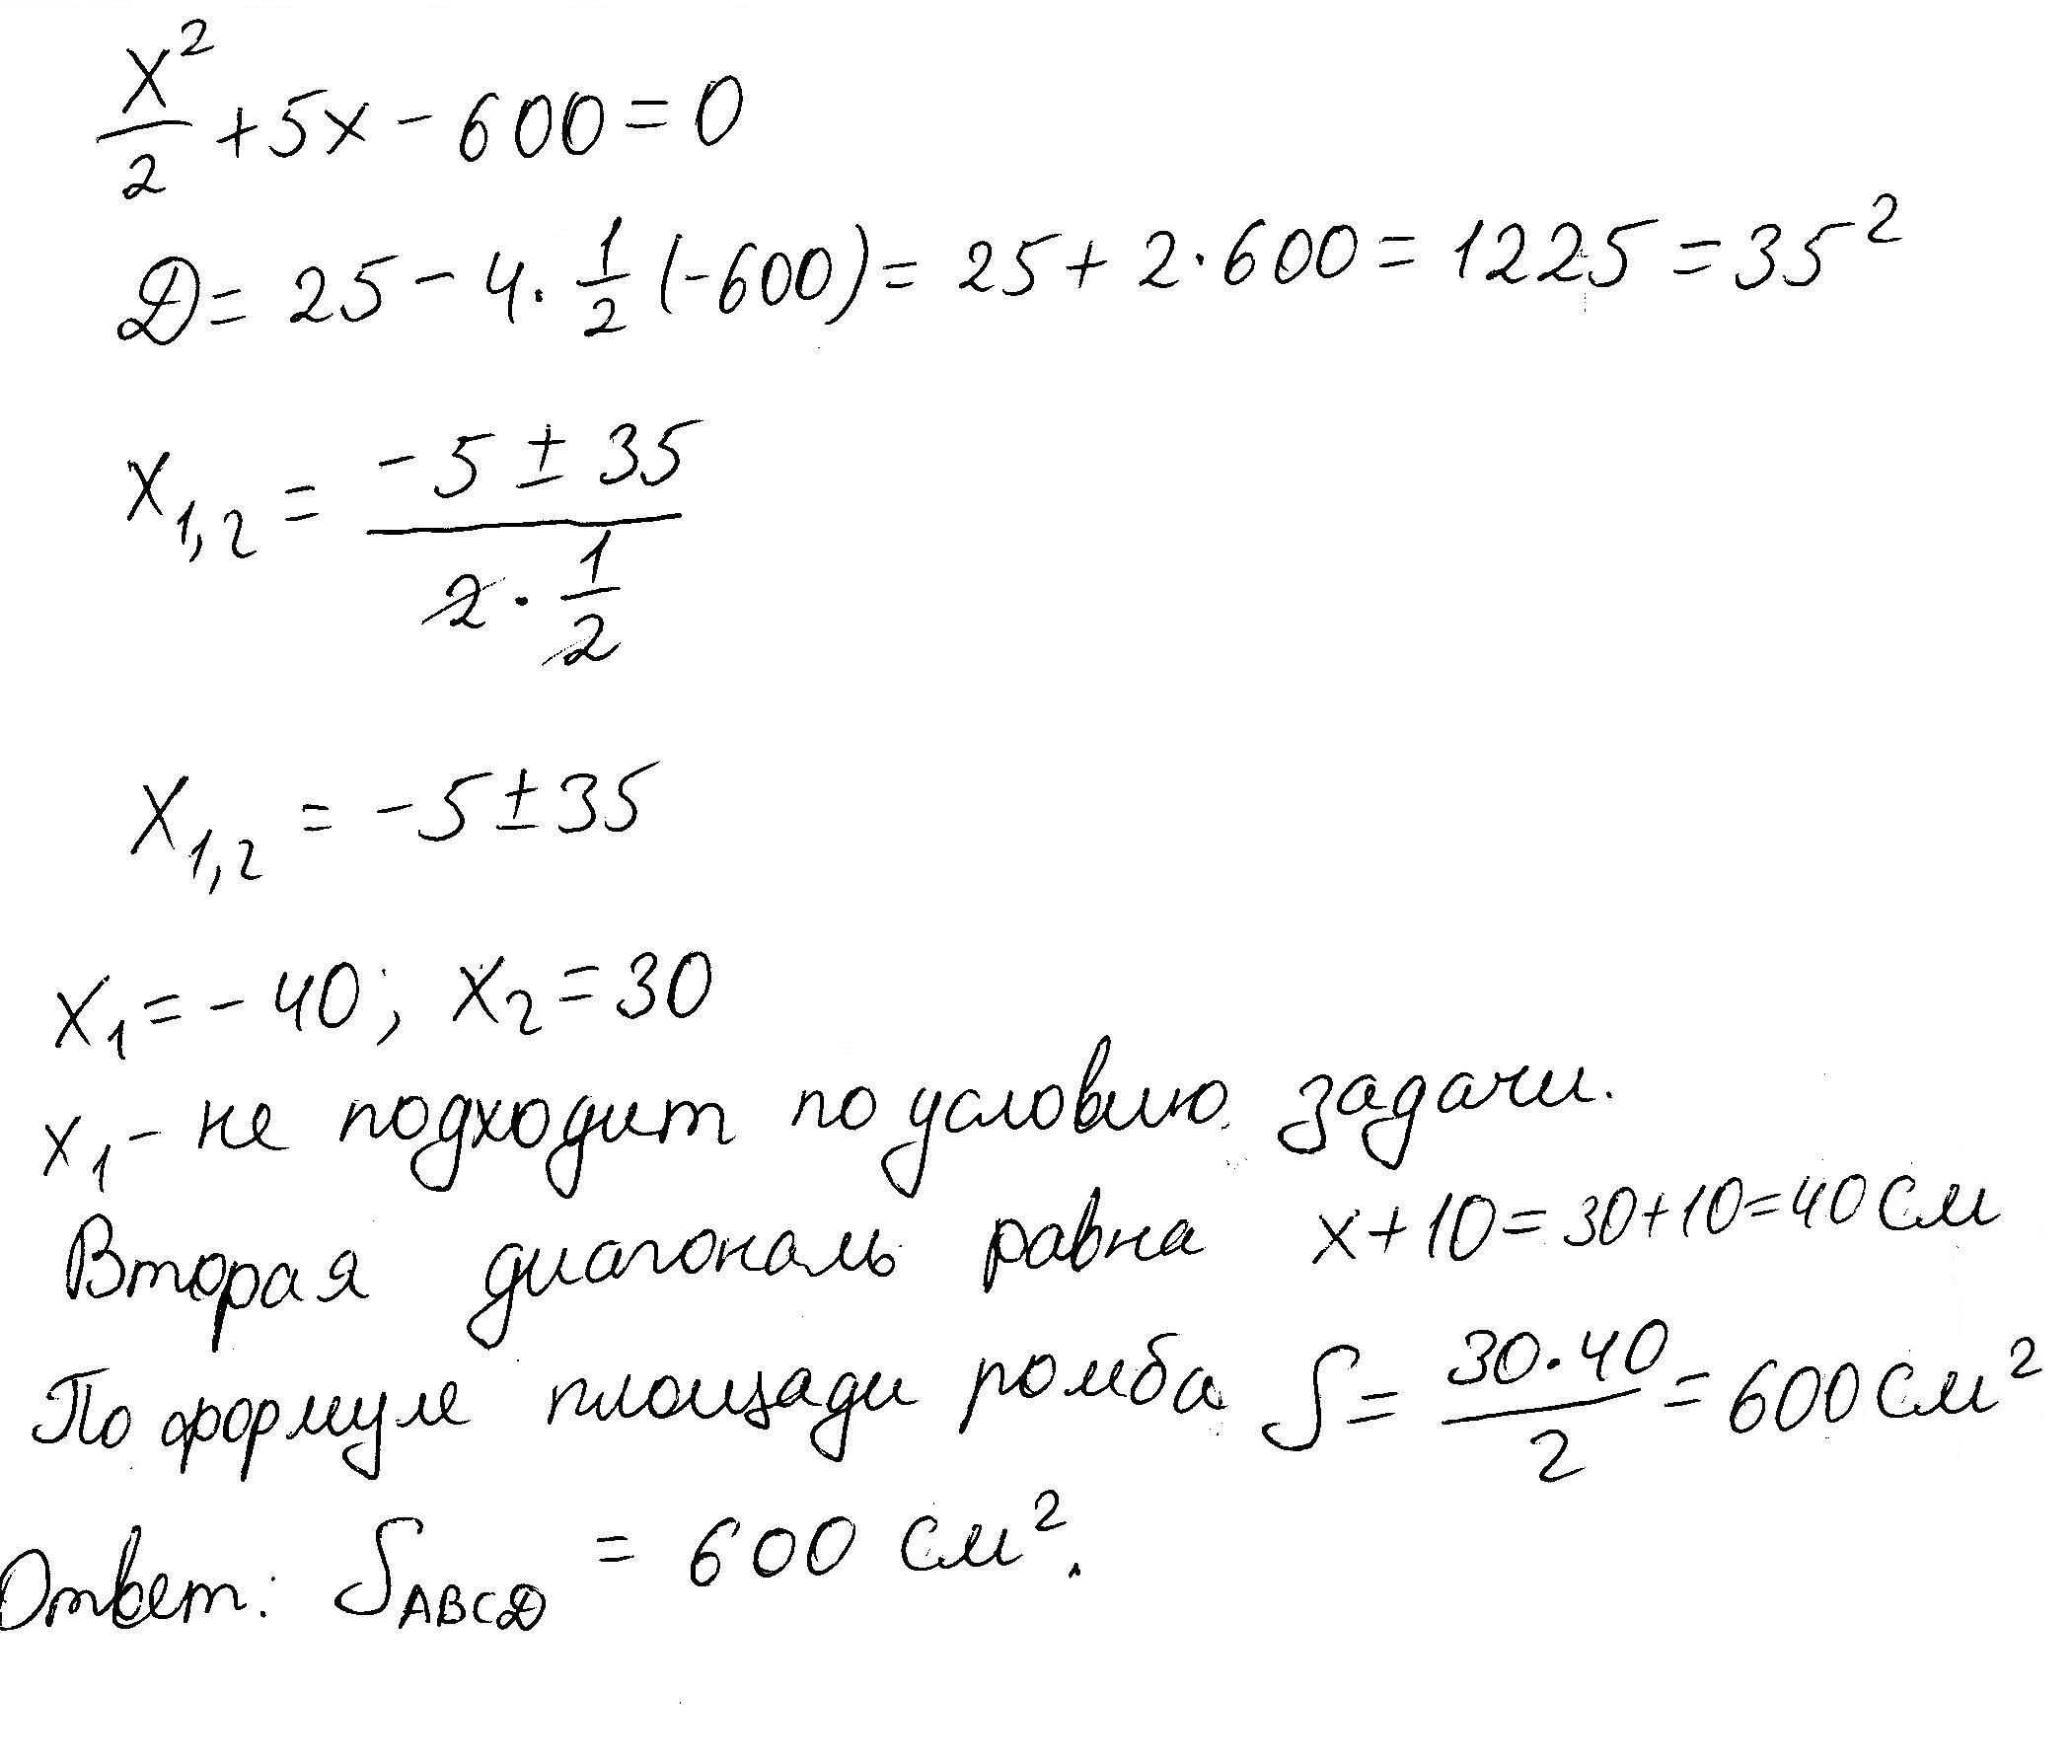 x²/2 + 5x - 600 = 0
D = 25 - 4 · 1/2 (-600) = 25 + 2 · 600 = 1225 = 35²
x₁,₂ = (-5 ± 35)/(2 · 1/2)
x₁,₂ = -5 ± 35
x₁ = -40; x₂ = 30
x₁ - не подходит по условию задачи.
Вторая диагональ равна x + 10 = 30 + 10 = 40 см
По формуле площади ромба S = (30 · 40)/2 = 600 см²
Ответ: S_ABCD = 600 см².